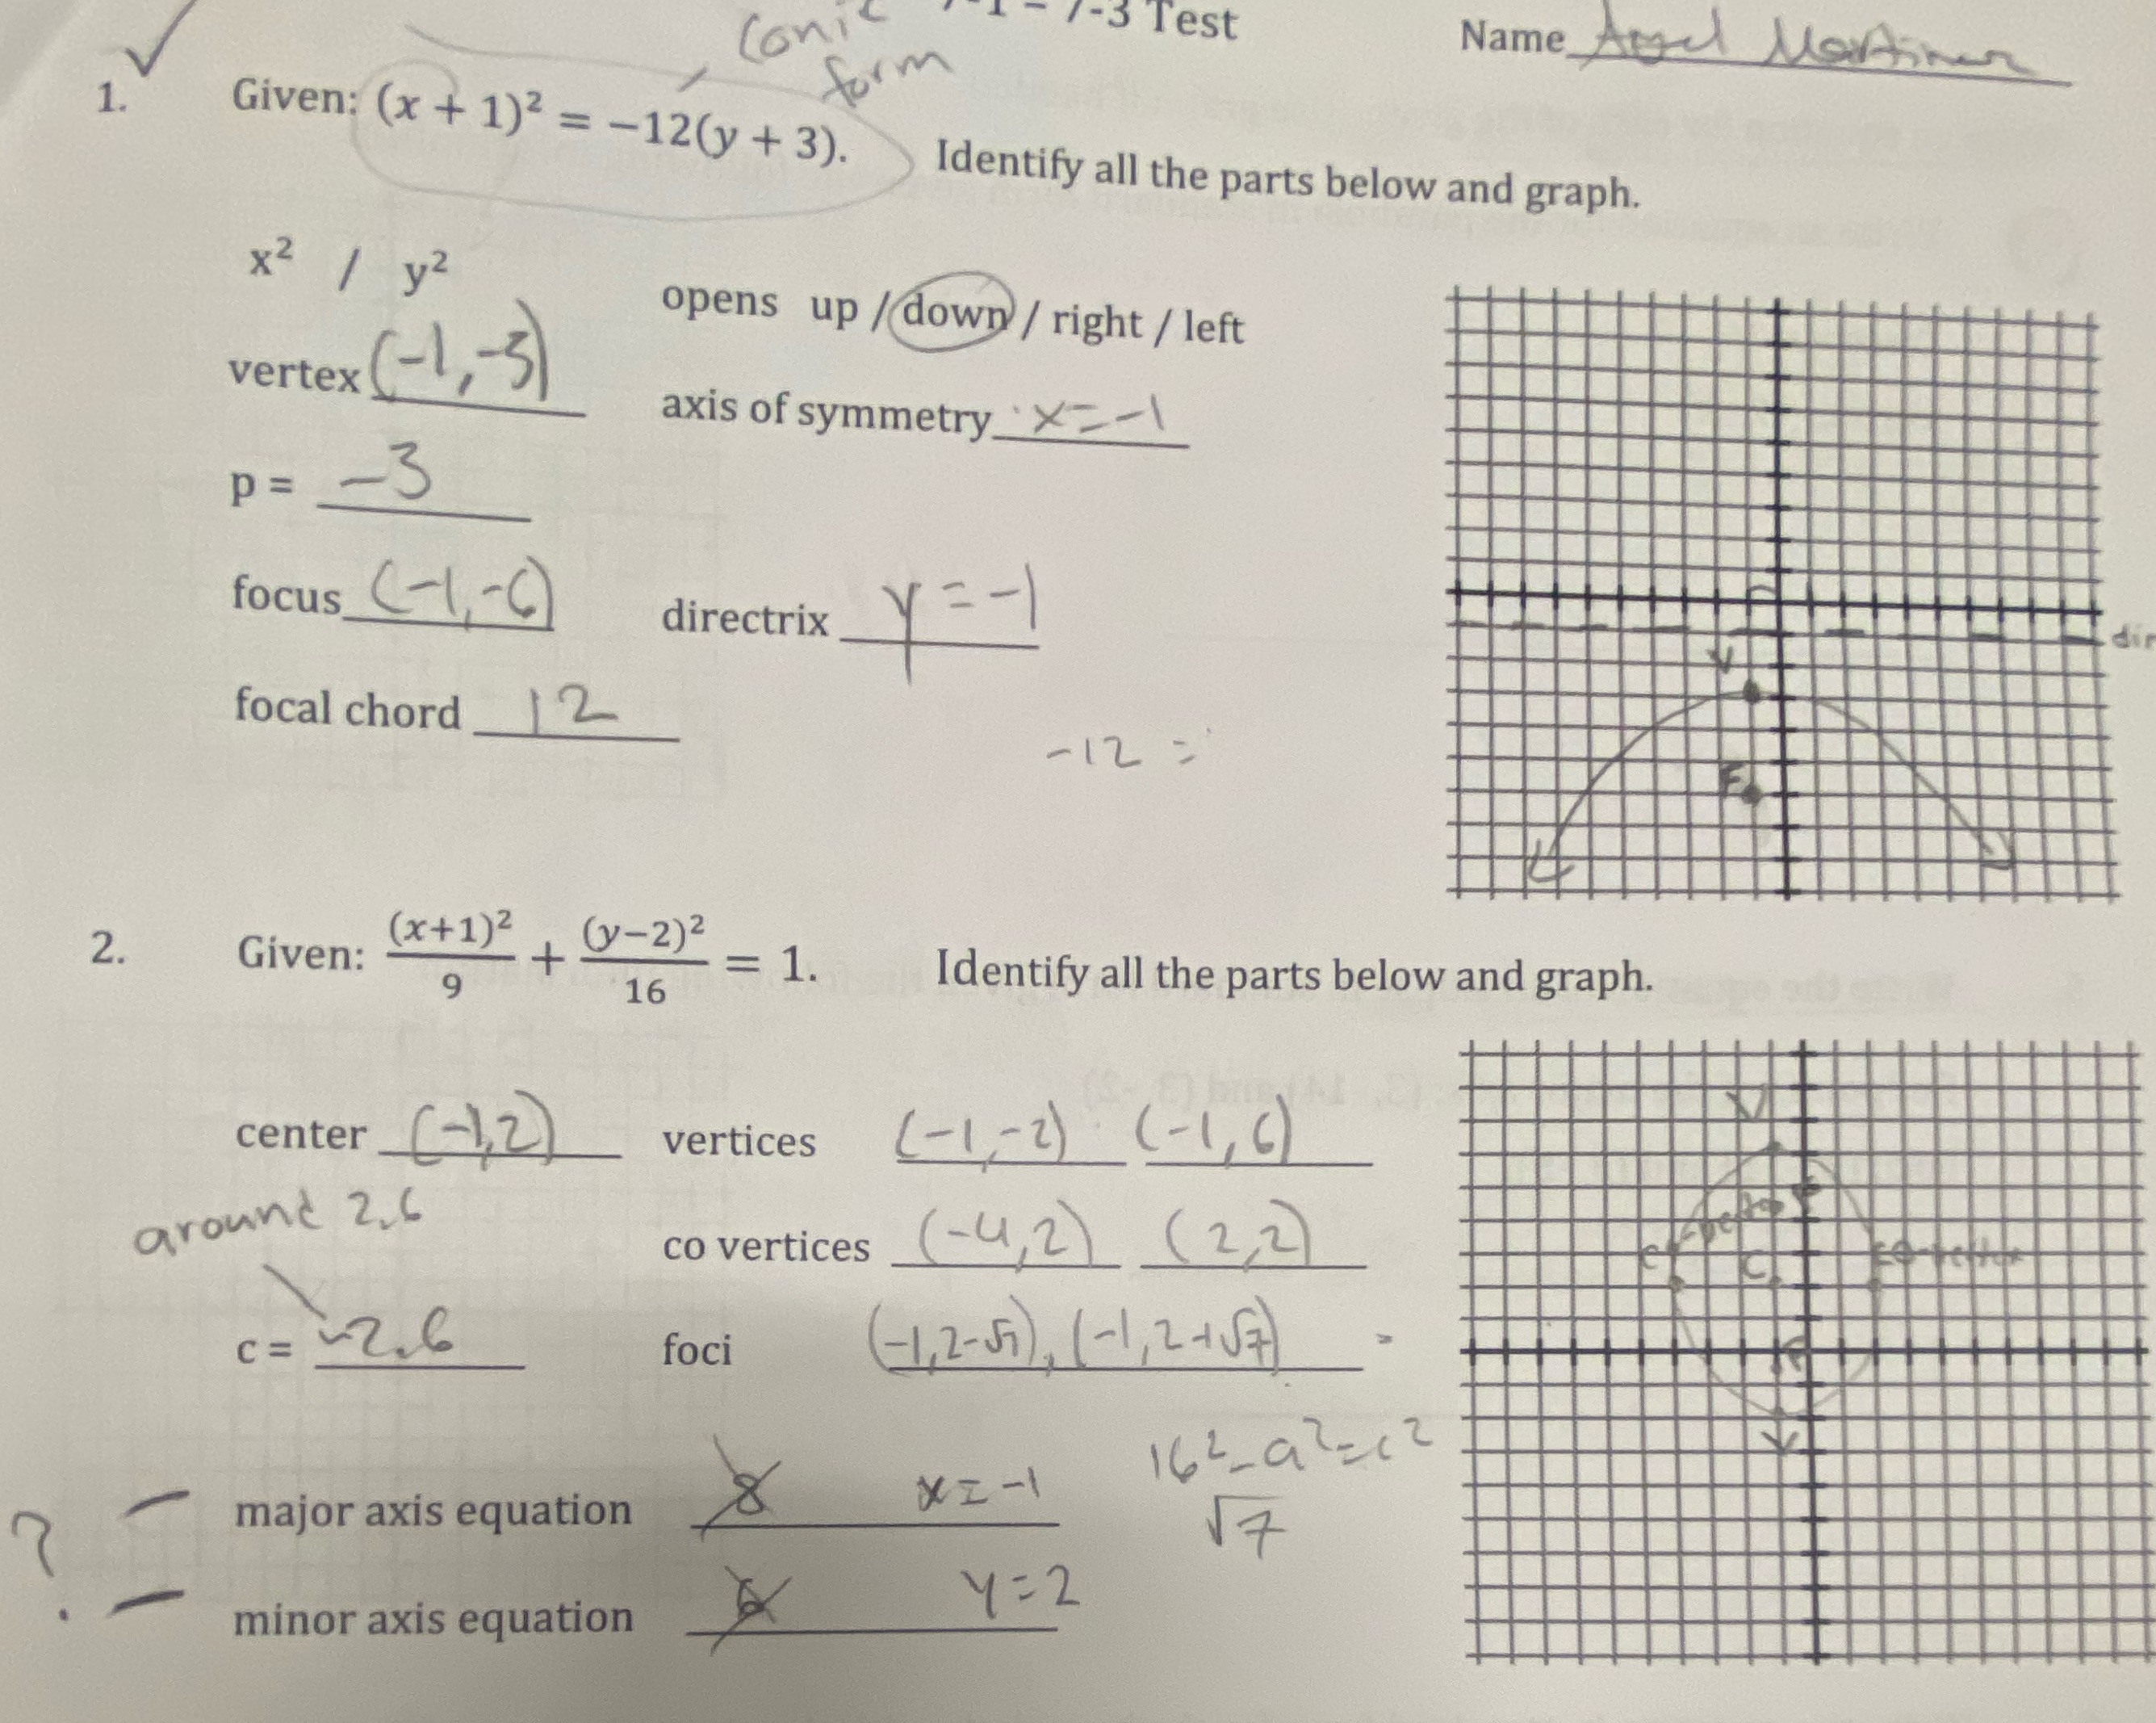 7-1 – 7-3 Test
Name
conic form
1. Given: (x + 1)² = −12(y + 3). Identify all the parts below and graph.
x² / y²
opens up / down / right / left
vertex (-1,-3)
axis of symmetry x=-1
p = -3
focus (-1,-6)
directrix y=-1
dir
focal chord 12
-12 =
V
F
2. Given: (x+1)²/9 + (y−2)²/16 = 1. Identify all the parts below and graph.
center (-1,2)
vertices (-1,-2) (-1,6)
around 2.6
co vertices (-4,2) (2,2)
c = ~2.6
foci (-1,2-√7), (-1,2+√7)
V
F
co-vertex
C
co-vertex
F
V
16²-a²=c²
√7
? - major axis equation 8 x=-1
- minor axis equation 6 y=2